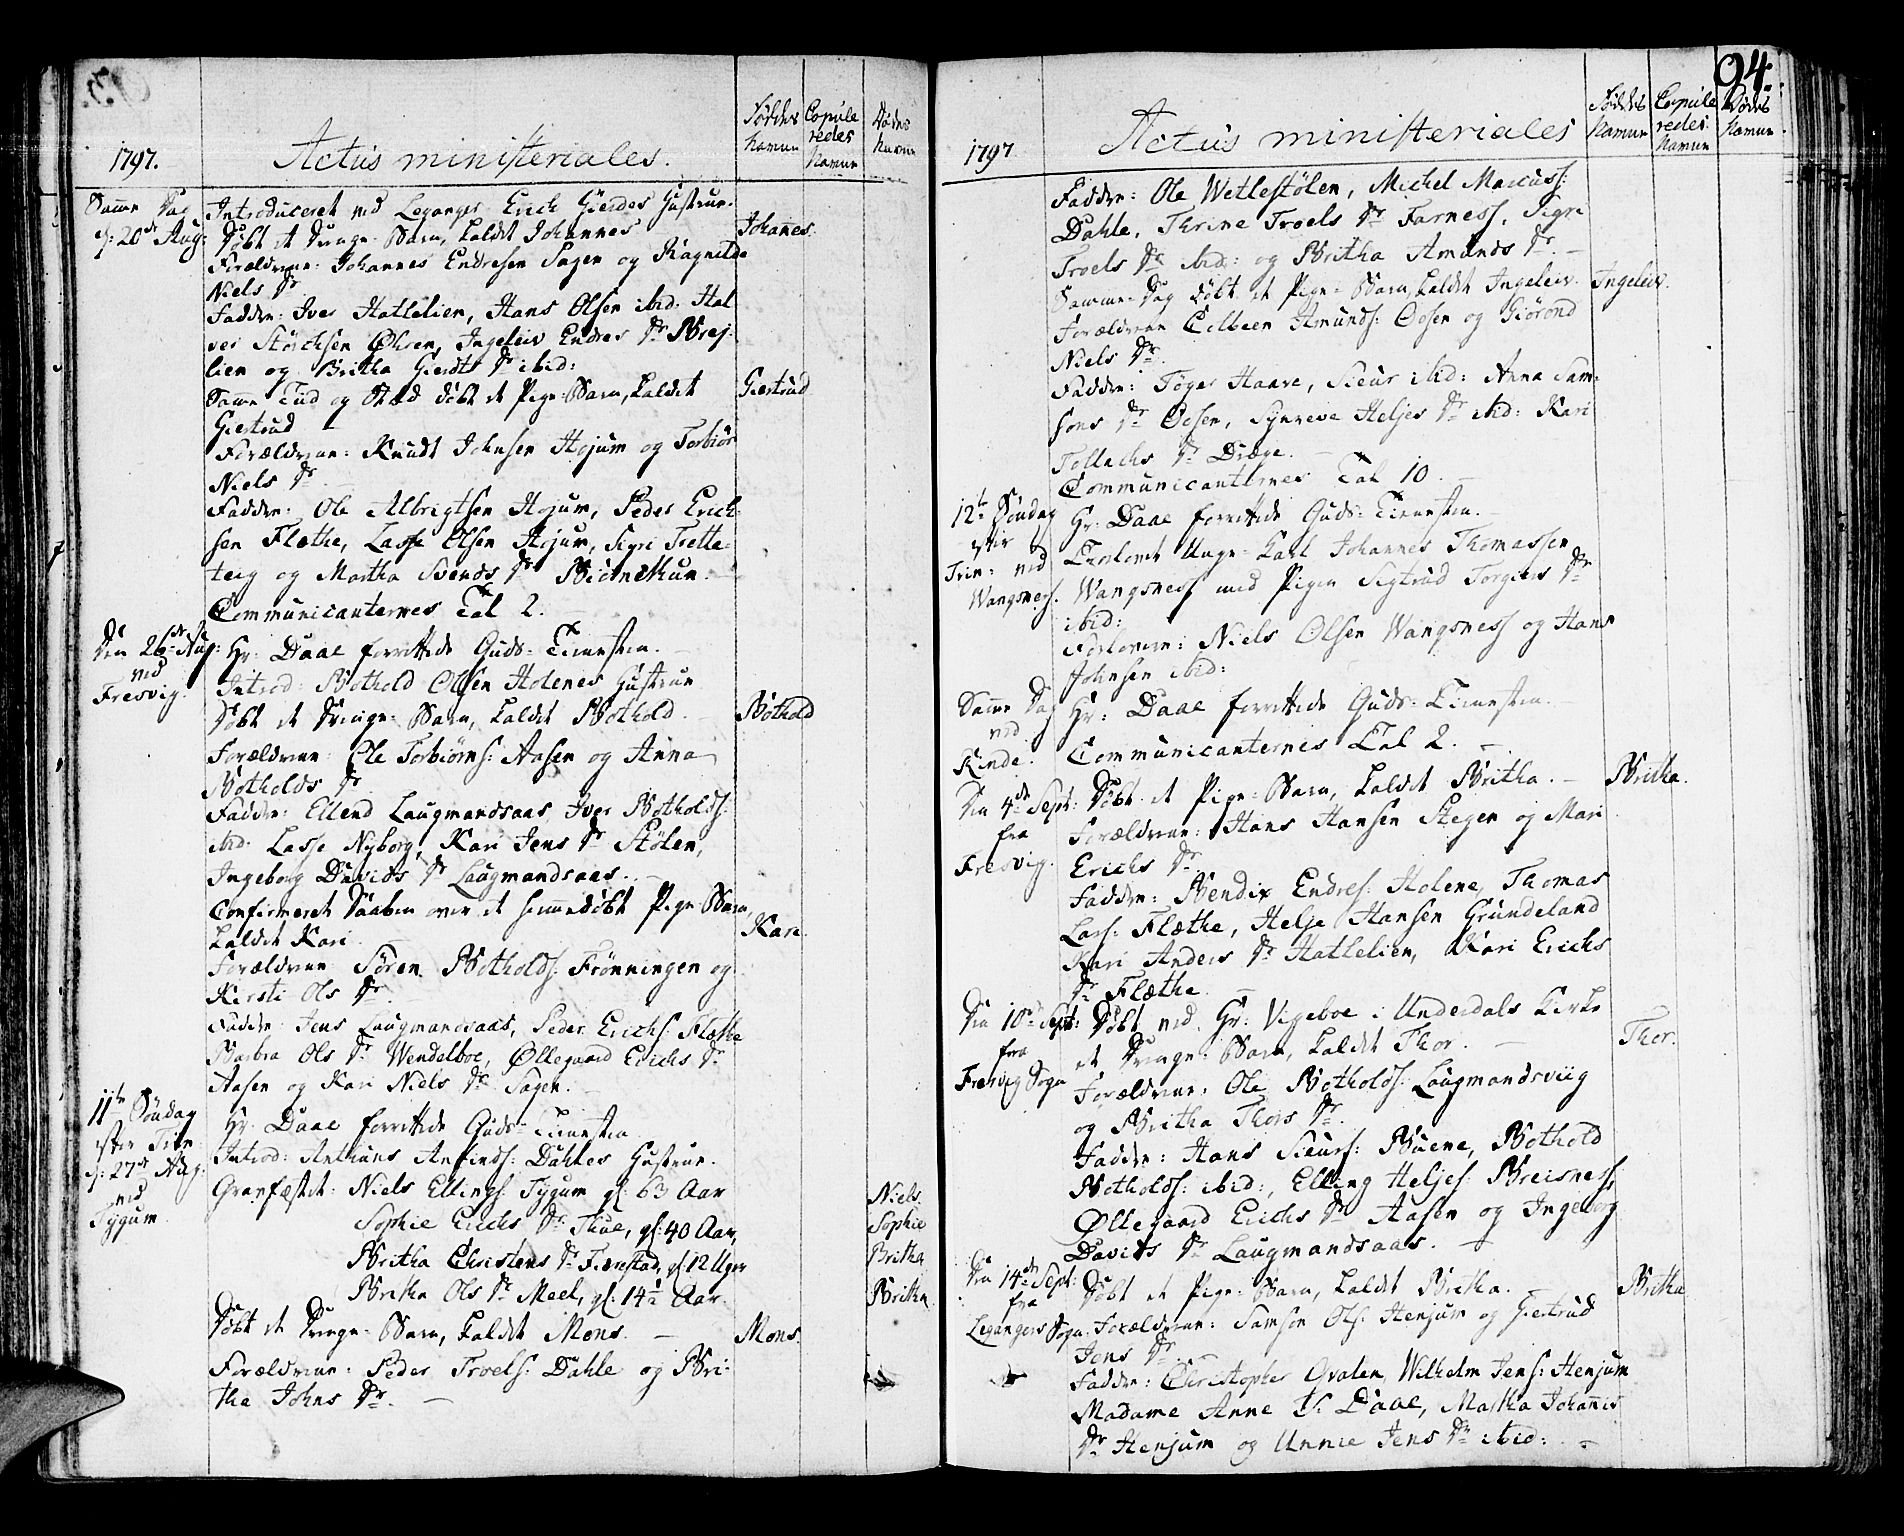 1797.
Actus ministeriales.
Føddes Navne
Copuleredes Navne
Dødes Navne
Samme Dag
d: 20de Aug:
Introduceret ved Leganger Erich Gierdes Hustrue.
Døbt et Drenge-Barn, kaldet Johannes
Johannes.
Forældrene: Johannes Endresen Sagen og Ragnilde
Niels Dr
Faddere: Iver Hatlelien, Hans Olsen ibid: Hal
vor Størchsen Øhren, Ingeleiv Endres Dr Brej-
lien og Britha Gierdts Dr ibid:
Samme Tiid og Stæd døbt et Pige-Barn, kaldet
Giertrud
Giertrud
Forældrene: Knudt Johnsen Hojum og Torbiør
Niels Dr
Faddere: Ole Albrigtsen Hojum, Peder Erich-
sen Flæthe, Lasse Olsen Hojum, Sigri Tvette-
teig og Martha Svends Dr Biørnekun.
Communicanternes Tal 2.
Den 26de Aug:
ved
Fresvig.
Hr: Daae forrettede Guds-Tienesten.
Introd: Bothold Olsen Holenes Hustrue
Døbt et Drenge-Barn, kaldet Bothold.
Bothold
Forældrene: Ole Torbiørns: Aasen og Anna
Botholds Dr
Faddere: Ellend Laugmandsaas, Iver Botholds:
ibid. Lasse Nyborg, Kari Jens Dr Stølen,
Ingeborg Davids Dr Laugmandsaas.
Confirmeret Daaben over et hiemmedøbt Pige-Barn,
kaldet Kari
Kari.
Forældrene Søren Botholds: Frønningen og
Kirsti Ols Dr.
Faddere: Jens Laugmandsaas, Peder Erichs: Flæthe
Barbra Ols Dr Wendelboe, Øllegaard Erichs Dr
Aasen og Kari Niels Dr Sagen.
11te Søndag
efter Trin:
d: 27de Aug:
ved
Tygum
Hr. Daae forrettede Guds-Tienesten
Introd: Anthuns Anfinds: Dahles Hustrue.
Gravfæstet: Niels Ellings: Tygum gl: 63 Aar
Niels.
Sophie Erichs Dr Thue, gl: 40 Aar,
Sophie
Britha Christens Dr Fienstad, gl: 12 Uger
Britha
Britha Ols Dr Meel, gl: 14½ Aar.
Britha
Døbt et Drenge-Barn, kaldet Mons.
Mons.
Forældrene: Peder Troels: Dahle og Bri-
tha Johns Dr.
94.
1797
Actus ministeriales
Føddes Navne
Copuleredes Navne
Dødes Navne
Faddere: Ole Wetlestølen, Michel Marcuss:
Dahle, Thrine Troels Dr Farness, Sigri
Troels Dr ibid: og Britha Amunds Dr.
Samme-Dag døbt et Pige-Barn, kaldet Ingeleiv.
Ingeleiv.
Forældrene Colbeen Amunds: Oosen og Giørond
Niels Dr.
Faddere: Tøger Haave, Sieur ibid: Anna Sam-
sons Dr Oosen, Synneve Heljes Dr ibid: Kari
Tollachs Dr Dræge.
Communicanternes Tal 10.
12te Søndag
efter
Trin: ved
Wangsness.
Hr: Daae forrettede Guds-Tienesten.
Trolovet Unge-Karl Johannes Thomassen
Wangsness med Pigen Sigtrud Torgiers Dr
ibid:
Forlovere: Niels Olsen Wangsness og Hans
Johnsen ibid:
Samme Dag
ved
Kinde.
Hr: Daae forrettede Guds-Tienesten.
Communicanternes Tal 2.
Den 4de Sept:
fra
Fresvig.
Døbt et Pige-Barn, kaldet Britha.
Britha.
Forældrene: Hans Hansen Stegen og Mari
Erichs Dr
Faddere: Bendix Endres: Holene, Thomas
Lars: Flæthe, Helje Hansen Grundeland
Kari Anders Dr Hatlelien, Kari Erichs
Dr Flæthe.
Den 10de Sept:
fra
Fresvig Sogn
Døbt ved Hr: Vigeboe i Underdals Kirke
et Drenge-Barn, kaldet Thor.
Thor.
Forældrene: Ole Botholds: Laugmandsviig
og Britha Thors Dr.
Faddere: Hans Sieurs: Buene, Bothold
Botholds: ibid:, Elling Heljes: Breisness,
Øllegaard Erichs Dr Aasen og Ingeborg
Davids Dr Laugmandsaas.
Den 14de Sept:
fra
Legangers Sogn.
Døbt et Pige-Barn, kaldet Britha.
Britha
Forældrene: Samson Ols: Henjum og Giertrud
Jens Dr.
Faddere: Christopher Qvalen, Wilhelm Jens: Henjum
Madame Anne S: Daae, Martha Johannis
Dr Henjum og Unnie Jens Dr ibid: